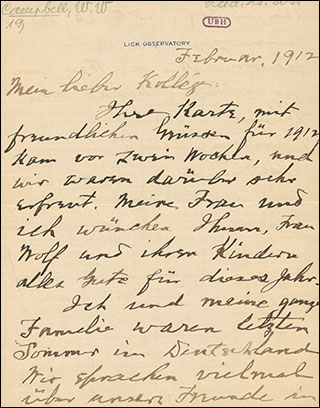 Campbell, W. W.
19
UBH
LICK OBSERVATORY
Februar, 1912
Mein lieber Kollege:
Ihre Karte, mit
freundlichen Grüssen für 1912
kam vor zwein Wochen, und
wir waren darüber sehr
erfreut. Meine Frau und
ich wünchen Ihnen, Frau
Wolf und ihren Kindern
alles Gute für dieses Jahr.
Ich und meine ganze
Familie waren letzten
Sommer in Deutschland
Wir sprachen vielmal
über unsere Freunde in